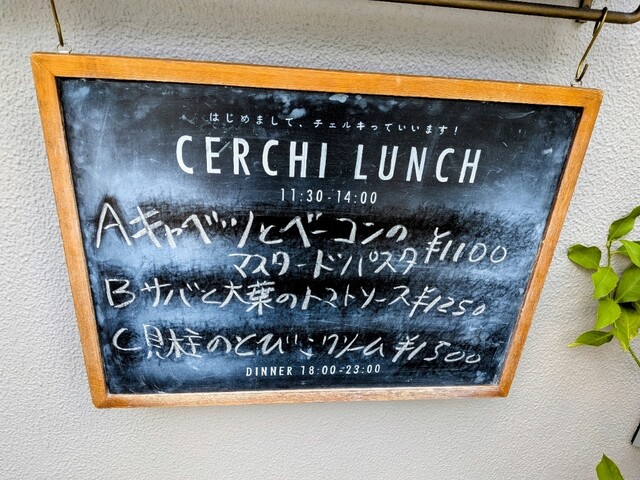 はじめまして、チェルキっていいます!
CERCHI LUNCH
11:30-14:00
A キャベツとベーコンの
マスタードパスタ ¥1100
B サバと大葉のトマトソース ¥1250
C 貝柱のとびこクリーム ¥1300
DINNER 18:00-23:00